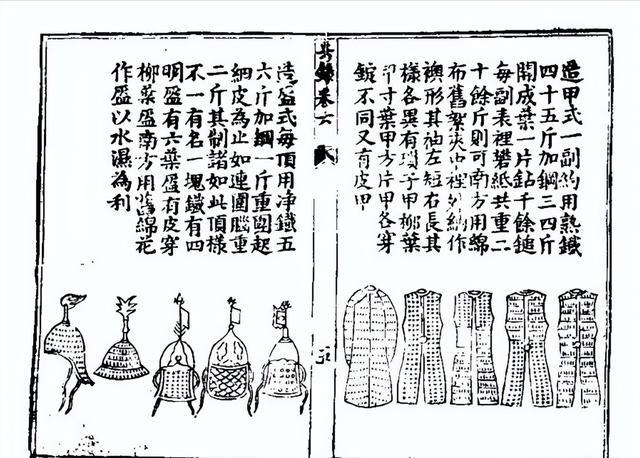 造甲式一副約用熟鐵
四十五斤加鋼三四斤
開成葉一片鉆千餘鎚
每副表裡礬紙共重二
十餘斤則可南方用綿
布舊絮夾中裡外納作
襖形其袖左短右長其
樣各異有瑣子甲柳葉
甲寸葉甲方片甲各穿
錠不同又有皮甲
兵錄卷六
造盔式每頂用净鐵五
六斤加鋼一斤重圓起
細皮為止如連圍腦重
二斤其制諸如此頂樣
不一有名一塊鐵有四
明盔有六葉盔有皮穿
柳葉盔南方用舊綿花
作盔以水濕為利